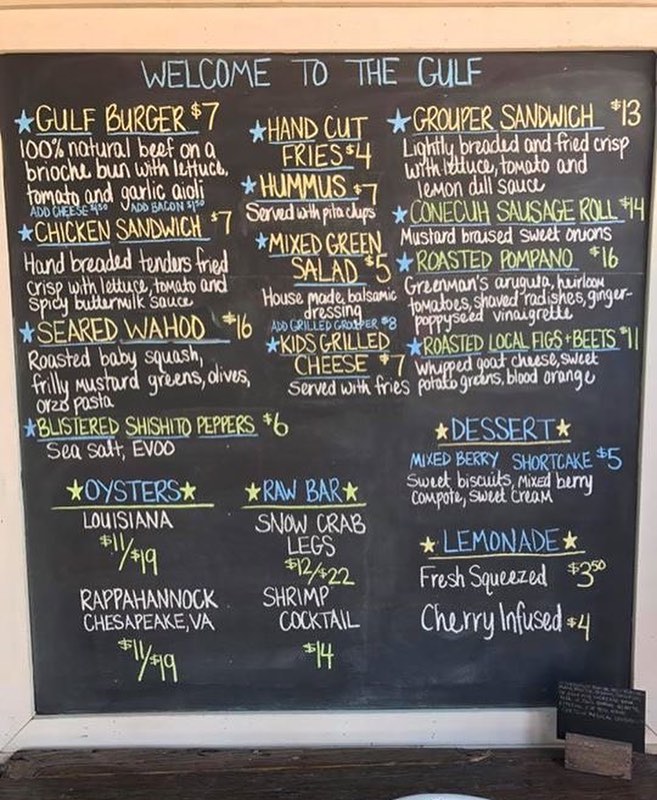 WELCOME TO THE GULF
GULF BURGER $7
100% natural beef on a
brioche bun with lettuce,
tomato and garlic aioli
ADD CHEESE $1.50 ADD BACON $1.50
CHICKEN SANDWICH $7
Hand breaded tenders fried
crisp with lettuce, tomato and
spicy buttermilk sauce
SEARED WAHOO $16
Roasted baby squash,
frilly mustard greens, olives,
orzo pasta
BLISTERED SHISHITO PEPPERS $6
Sea salt, EVOO
HAND CUT
FRIES $4
HUMMUS $7
Served with pita chips
MIXED GREEN
SALAD $5
House made, balsamic
dressing
ADD GRILLED GROUPER $8
KIDS GRILLED
CHEESE $7
Served with fries
GROUPER SANDWICH $13
Lightly breaded and fried crisp
with lettuce, tomato and
lemon dill sauce
CONECUH SAUSAGE ROLL $14
Mustard braised sweet onions
ROASTED POMPANO $16
Greenman's arugula, heirloom
tomatoes, shaved radishes, ginger-
poppyseed vinaigrette
ROASTED LOCAL FIGS + BEETS $11
Whipped goat cheese, sweet
potato greens, blood orange
OYSTERS
LOUISIANA
$11/$19
RAPPAHANNOCK
CHESAPEAKE, VA
$11/$19
RAW BAR
SNOW CRAB
LEGS
$12/$22
SHRIMP
COCKTAIL
$14
DESSERT
MIXED BERRY SHORTCAKE $5
Sweet biscuits, mixed berry
compote, sweet cream
LEMONADE
Fresh Squeezed $3.50
Cherry Infused $4